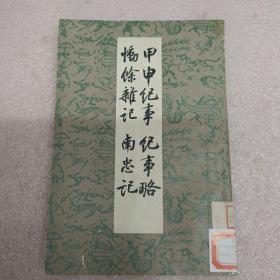 甲申纪事 纪事略
慟餘雜记 南忠记